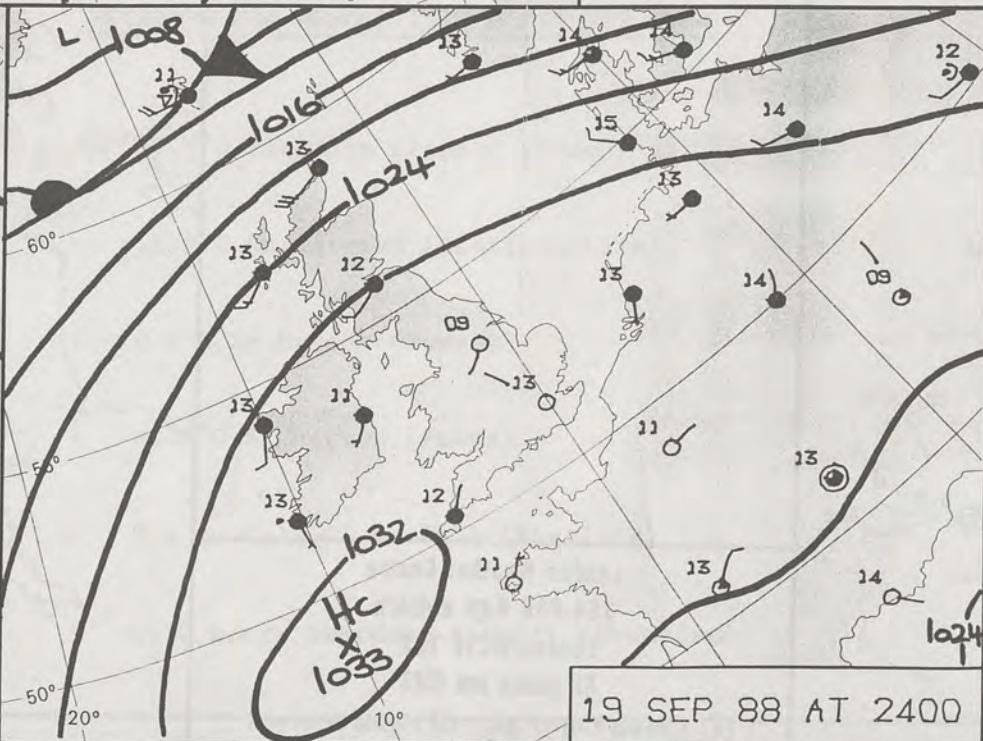 L 1008
11
13
14
14
12
1016
15
14
13
1024
13
60°
13
12
13
14
09
09
13
13
11
11
55°
13
13
12
1032
11
13
14
HC
X
1033
1024
50°
20°
10°
19 SEP 88 AT 2400